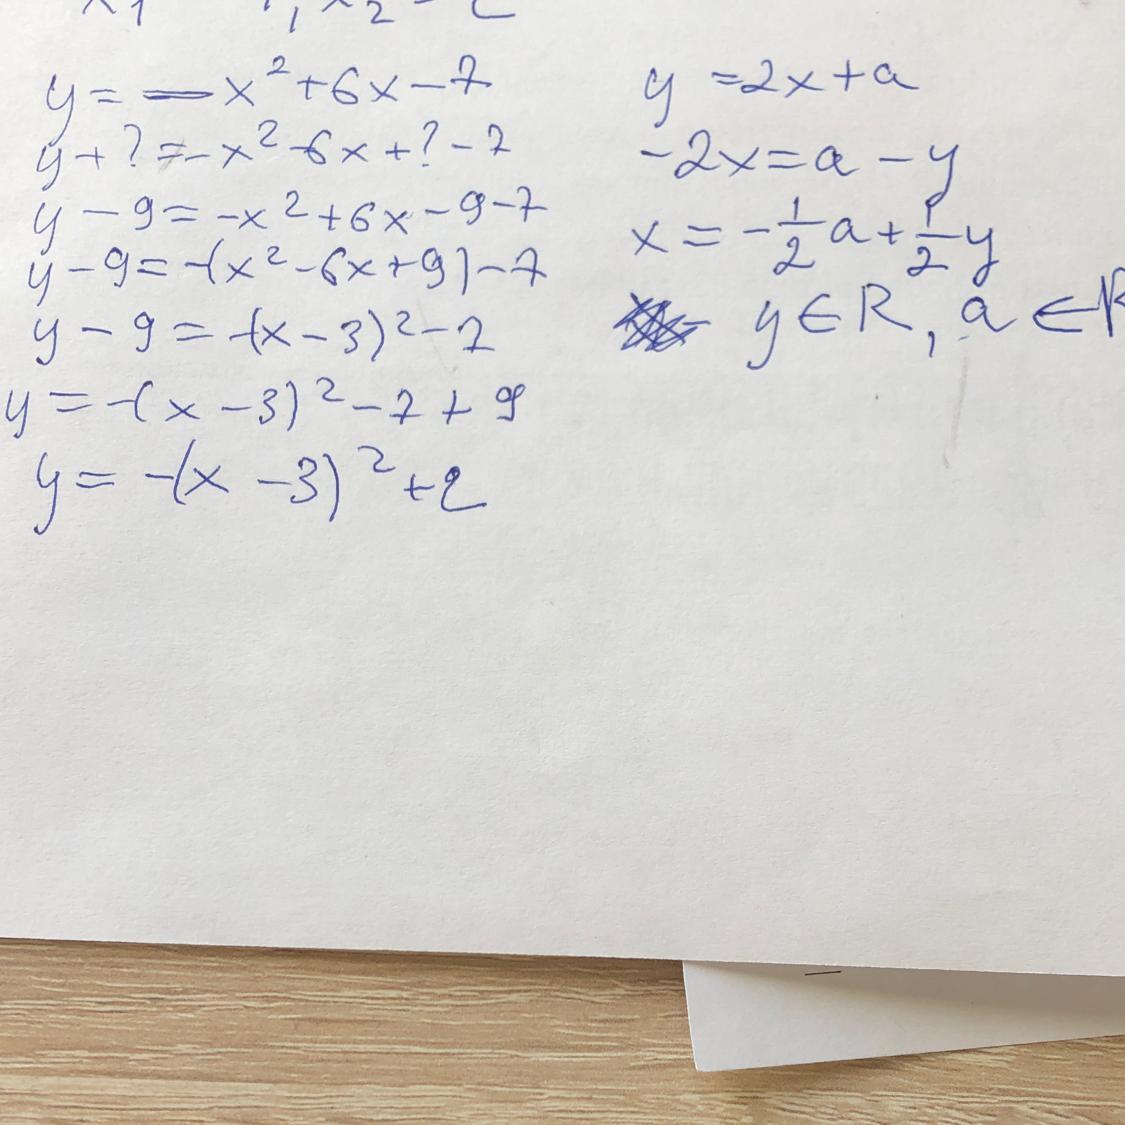 y = -x² + 6x - 7
y + ? = -x² - 6x + ? - 7
y - 9 = -x² + 6x - 9 - 7
y - 9 = -(x² - 6x + 9) - 7
y - 9 = -(x - 3)² - 7
y = -(x - 3)² - 7 + 9
y = -(x - 3)² + 2
y = 2x + a
-2x = a - y
x = -1/2 a + 1/2 y
y ∈ R, a ∈ R